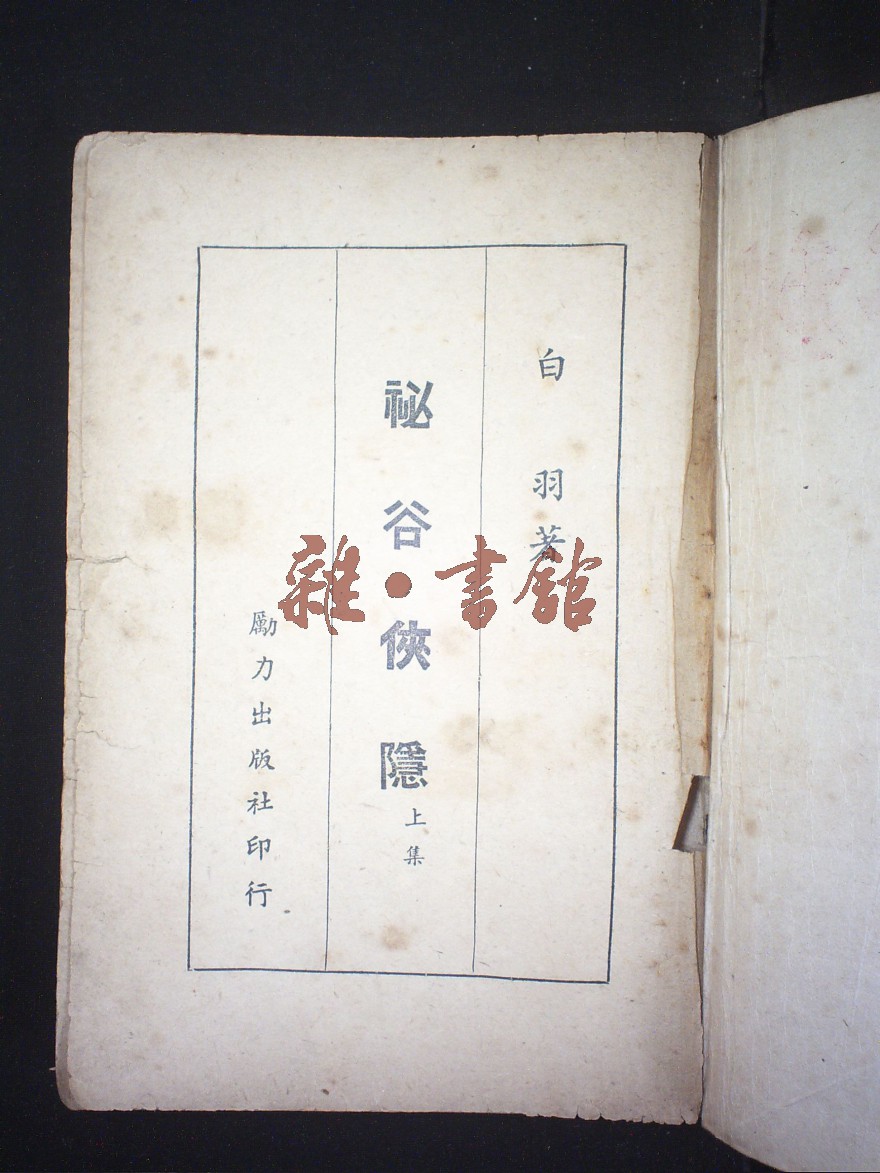 白羽著
祕谷俠隱
上集
勵力出版社印行
雜·書館